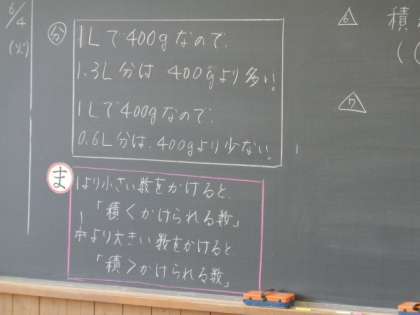 6/4
(火)
分
1Lで400gなので、
1.3L分は 400gより多い。
1Lで400gなので、
0.6L分は、400gより少ない。
ま
1より小さい数をかけると、
「積<かけられる数」
1より大きい数をかけると
「積>かけられる数」
6
積
7